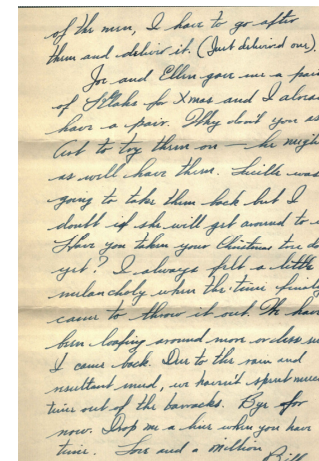 of the men, I have to go after
them and deliver it. (Just delivered one).
Joe and Ellen gave me a pair
of Slaks for Xmas and I alrea
have a pair. Why don't you as
Art to try them on — he migh
as well have them. Lucille was
going to take them back but I
doubt if she will get around to i
Have you taken your Christmas tree do
yet? I always felt a little
melancholy when the time finall
came to throw it out. We have
been loafing around more or less sin
I came back. Due to the rain and
resultant mud, we haven't spent much
time out of the barracks. Bye for
now. Drop me a line when you have
time. Love and a million
Bill